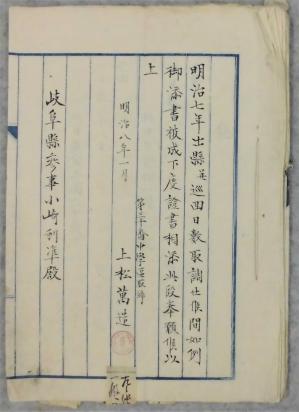 明治七年出縣并巡回日數取調仕候間如例
御添書被成下度證書相添此段奉願候以
上
第三番中學區取締
明治八年一月
上松萬造
岐阜縣参事小崎利準殿